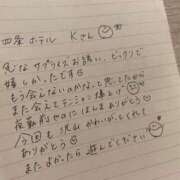 四条ホテル Kさん
急なサプライズお誘い、ビックリで
嬉しかったです
もう会えないのかなと思ってたから
また会えてテンション爆上げ
夜勤前やのにほんまありがとう
今回も沢山かわいがってくれて
ありがとう
またよかったら遊んでください